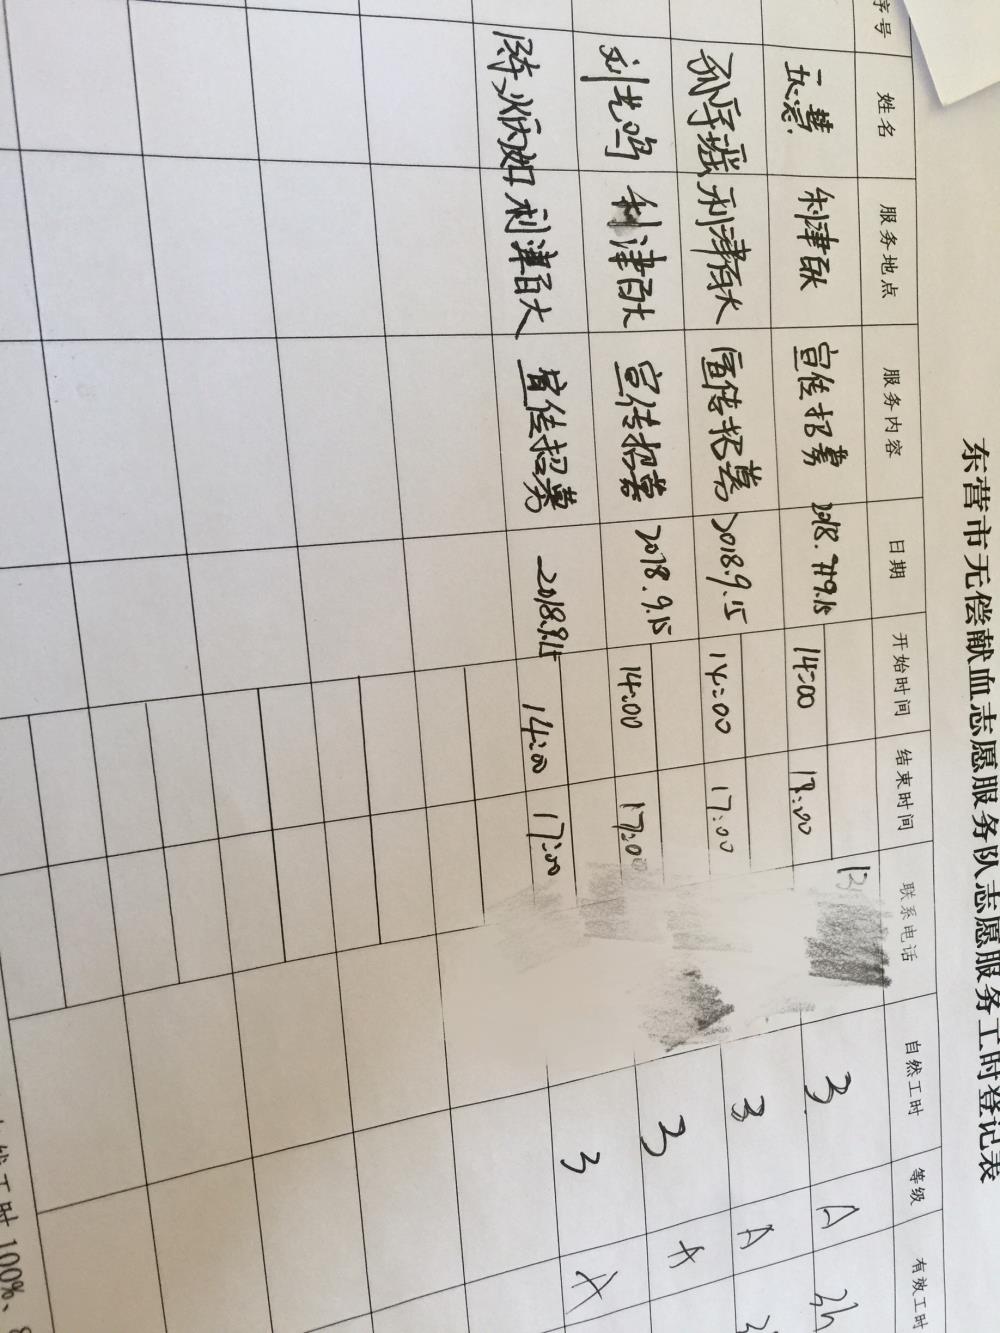 东营市无偿献血志愿服务队志愿服务工时登记表
序号 姓名 服务地点 服务内容 日期 开始时间 结束时间 联系电话 自然工时 等级 有效工时
慧 利津百大 宣传招募 9.15 14:00 17:00 13 3 A 3h
孙宇瑶 利津百大 宣传招募 2018.9.15 14:00 17:00 3 A 3
刘艺鸣 利津百大 宣传招募 2018.9.15 14:00 17:00 3 A
陈炳如 利津百大 宣传招募 2018.9.15 14:00 17:00 3 A
工时100%、